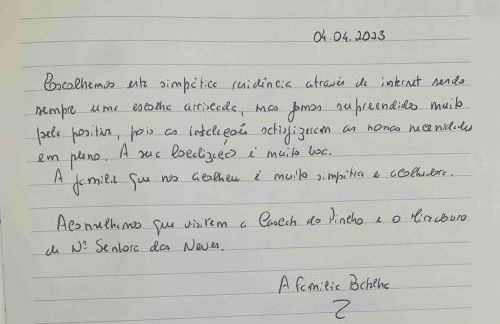 04.04.2023
Escolhemos esta simpática residência através da internet sendo
sempre uma escolha arriscada, mas fomos surpreendidos muito
pela positiva, pois as instalações satisfizeram as nossas necessidades
em pleno. A sua localização é muito boa.
A família que nos acolheu é muito simpática e acolhedora.
Aconselhamos que visitem a Cascata do Pincho e o Miradouro
de Nª Senhora das Neves.
A família